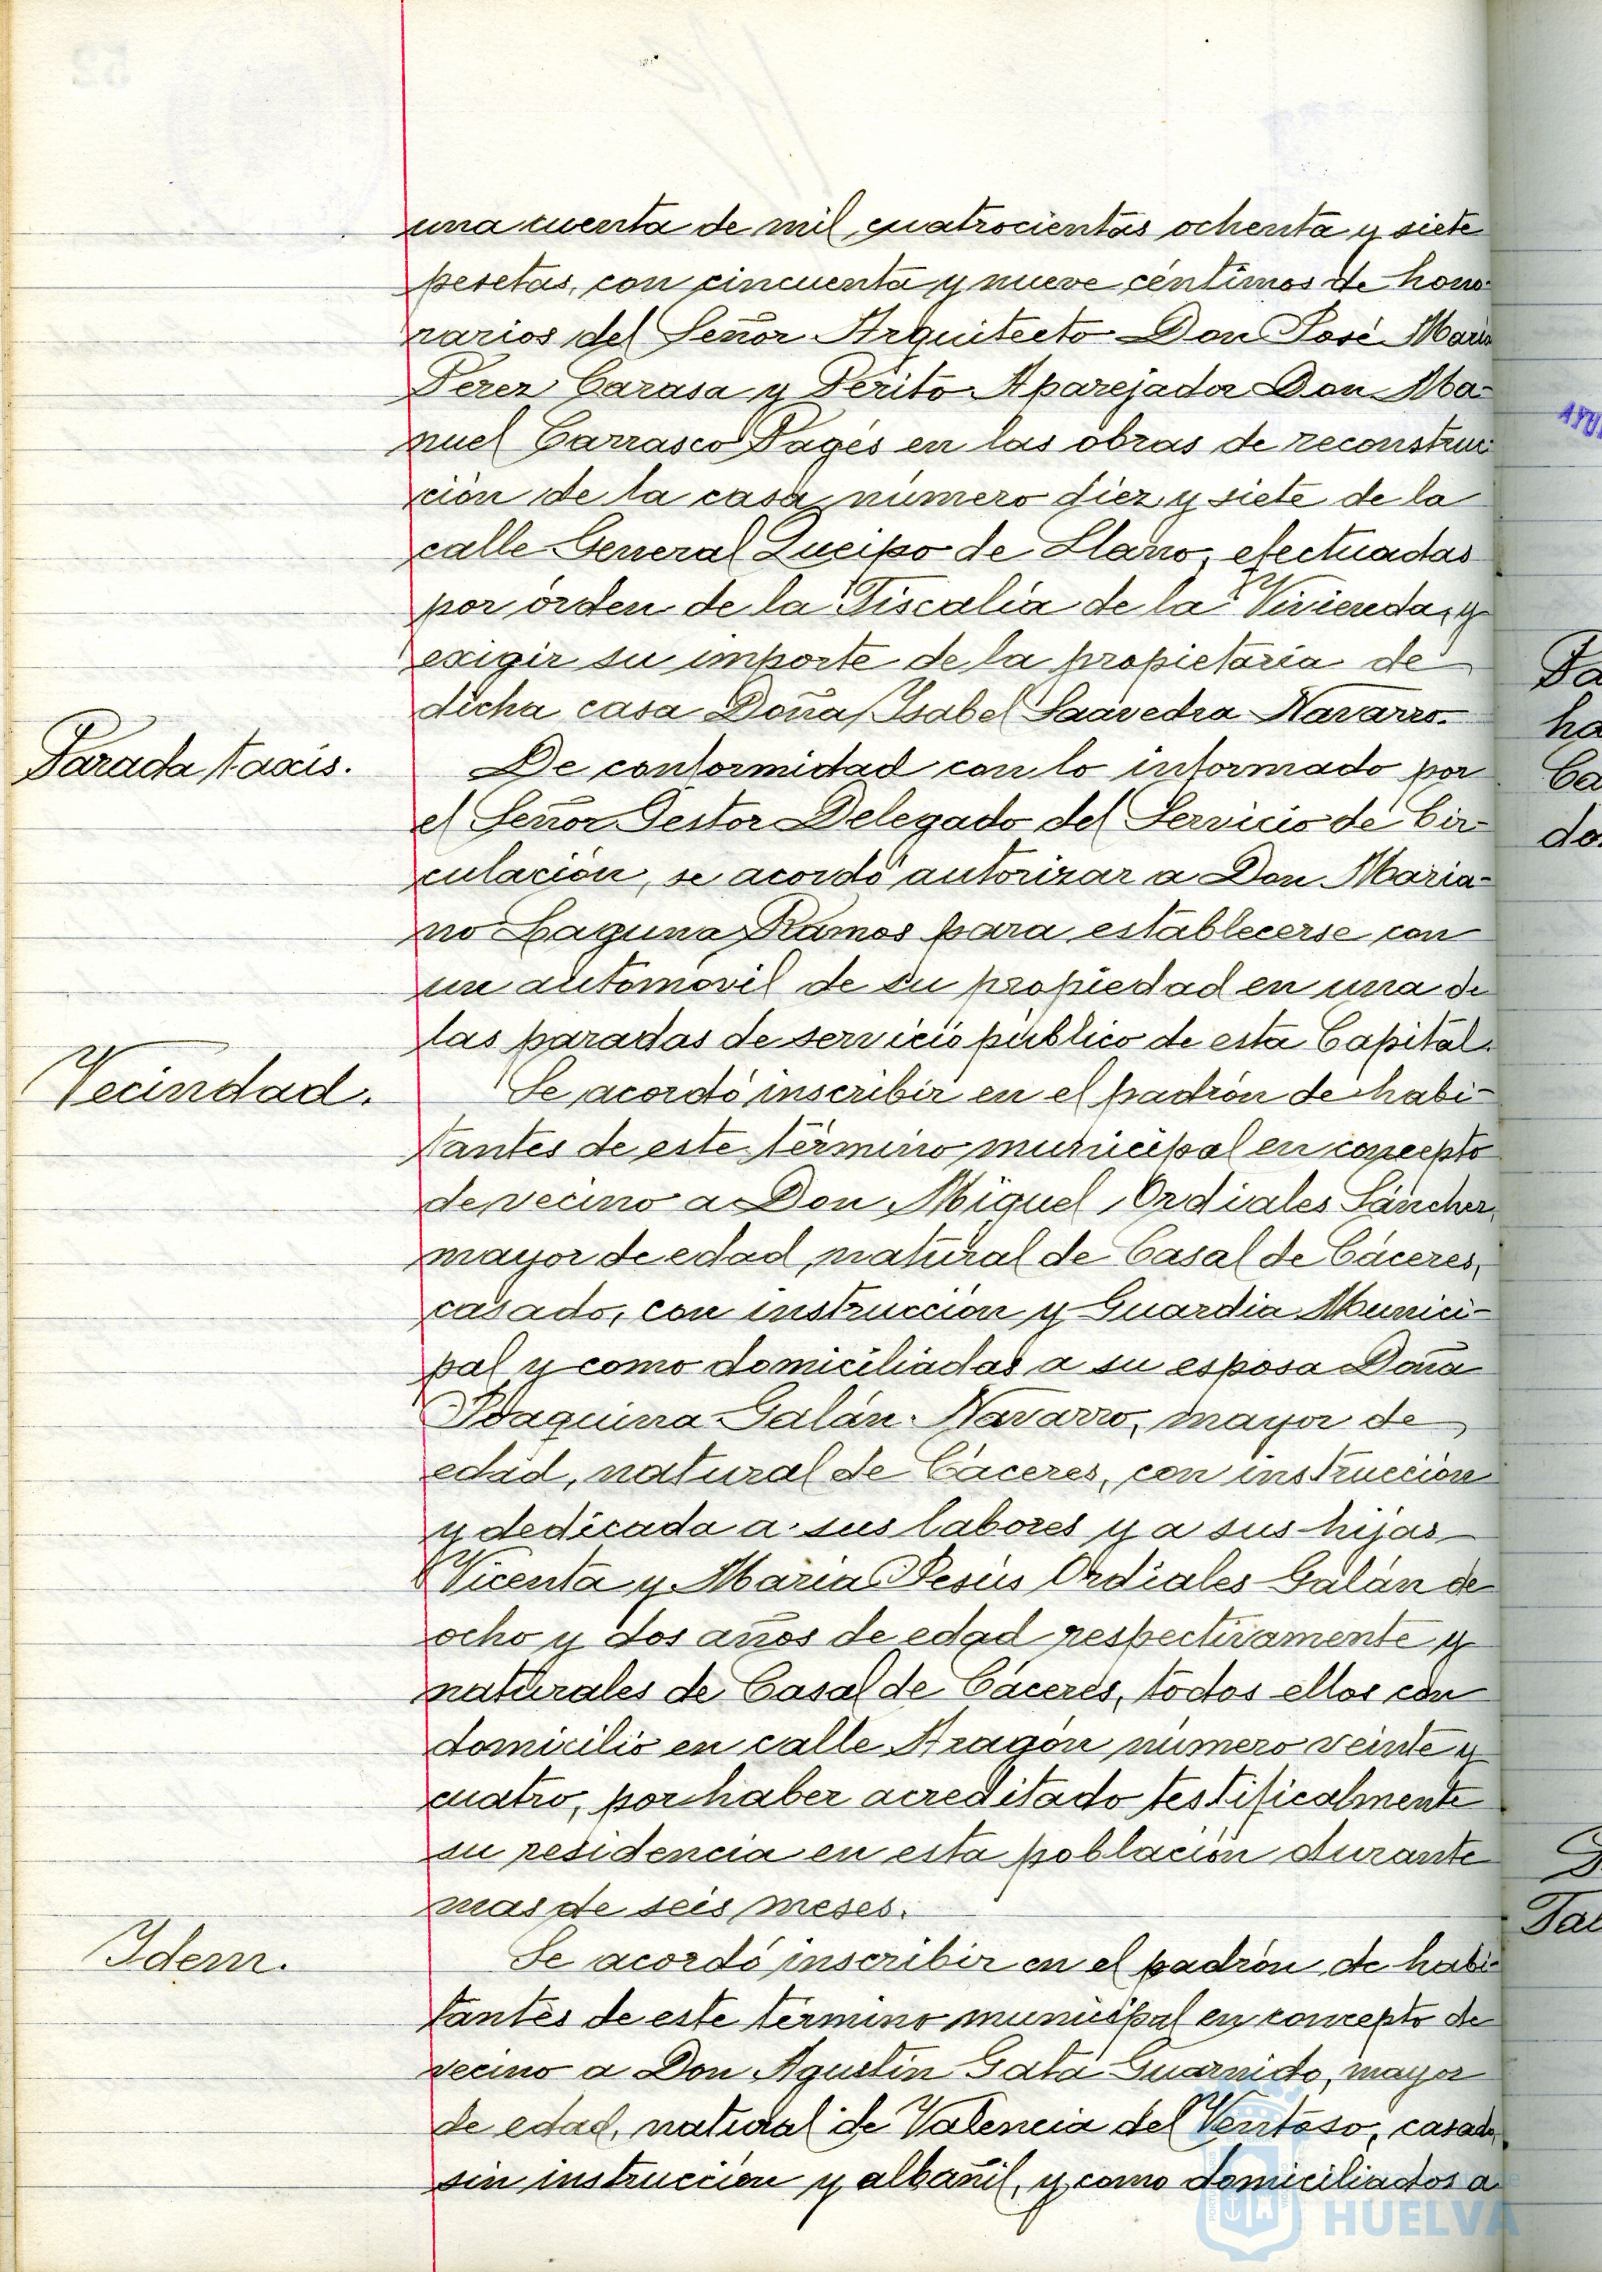 una cuenta de mil cuatrocientas ochenta y siete
pesetas, con cincuenta y nueve céntimos de hono-
rarios del Señor Arquitecto Don José María
Pérez Carasa y Perito Aparejador Don Ma-
nuel Carrasco Pagés en las obras de reconstruc-
ción de la casa número diez y siete de la
calle General Queipo de Llano, efectuadas
por órden de la Fiscalía de la Vivienda, y
exigir su importe de la propietaria de
dicha casa Doña Isabel Saavedra Navarro.
Parada taxis.
De conformidad con lo informado por
el Señor Gestor Delegado del Servicio de Cir-
culación, se acordó autorizar a Don Maria-
no Laguna Ramos para establecerse con
un automóvil de su propiedad en una de
las paradas de servicio público de esta Capital.
Vecindad.
Se acordó inscribir en el padrón de habi-
tantes de este término municipal en concepto
de vecino a Don Miguel Ordiales Sánchez,
mayor de edad, natural de Casal de Cáceres,
casado, con instrucción y Guardia Munici-
pal y como domiciliadas a su esposa Doña
Joaquina Galán Navarro, mayor de
edad, natural de Cáceres, con instrucción
y dedicada a sus labores y a sus hijas
Vicenta y María Jesús Ordiales Galán de
ocho y dos años de edad respectivamente y
naturales de Casal de Cáceres, todos ellos con
domicilio en calle Aragón número veinte y
cuatro, por haber acreditado testificalmente
su residencia en esta población durante
mas de seis meses.
Idem.
Se acordó inscribir en el padrón de habi-
tantes de este término municipal en concepto de
vecino a Don Agustín Gata Guarnido, mayor
de edad, natural de Valencia del Ventoso, casado,
sin instrucción y albañil, y como domiciliados a
HUELVA